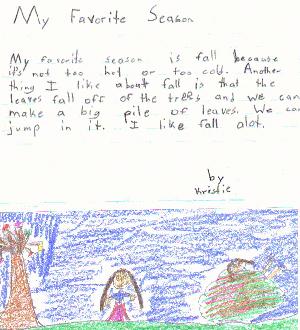 My Favorite Season
My favorite season is fall because
it's not too hot or too cold. Another
thing I like about fall is that the
leaves fall off of the trees and we can
make a big pile of leaves. We can
jump in it. I like fall alot.
by
Kristie